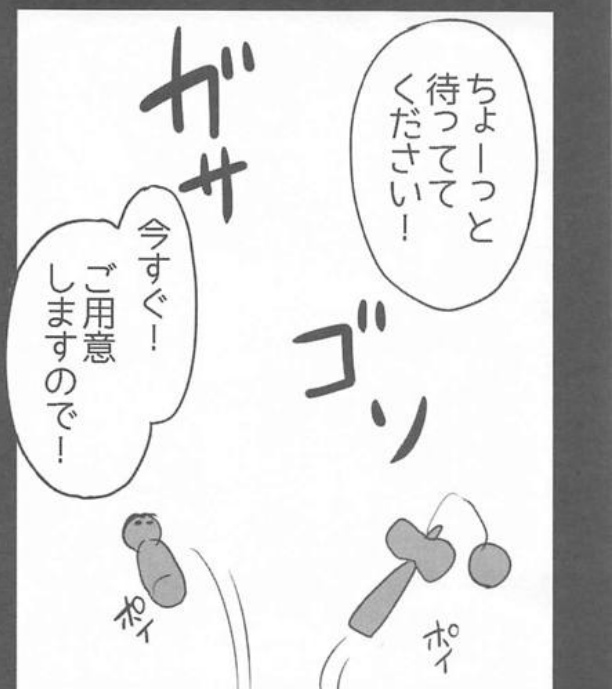 ちょーっと
待ってて
ください！
ガサ
ゴソ
今すぐ！
ご用意
しますので！
ポイ
ポイ